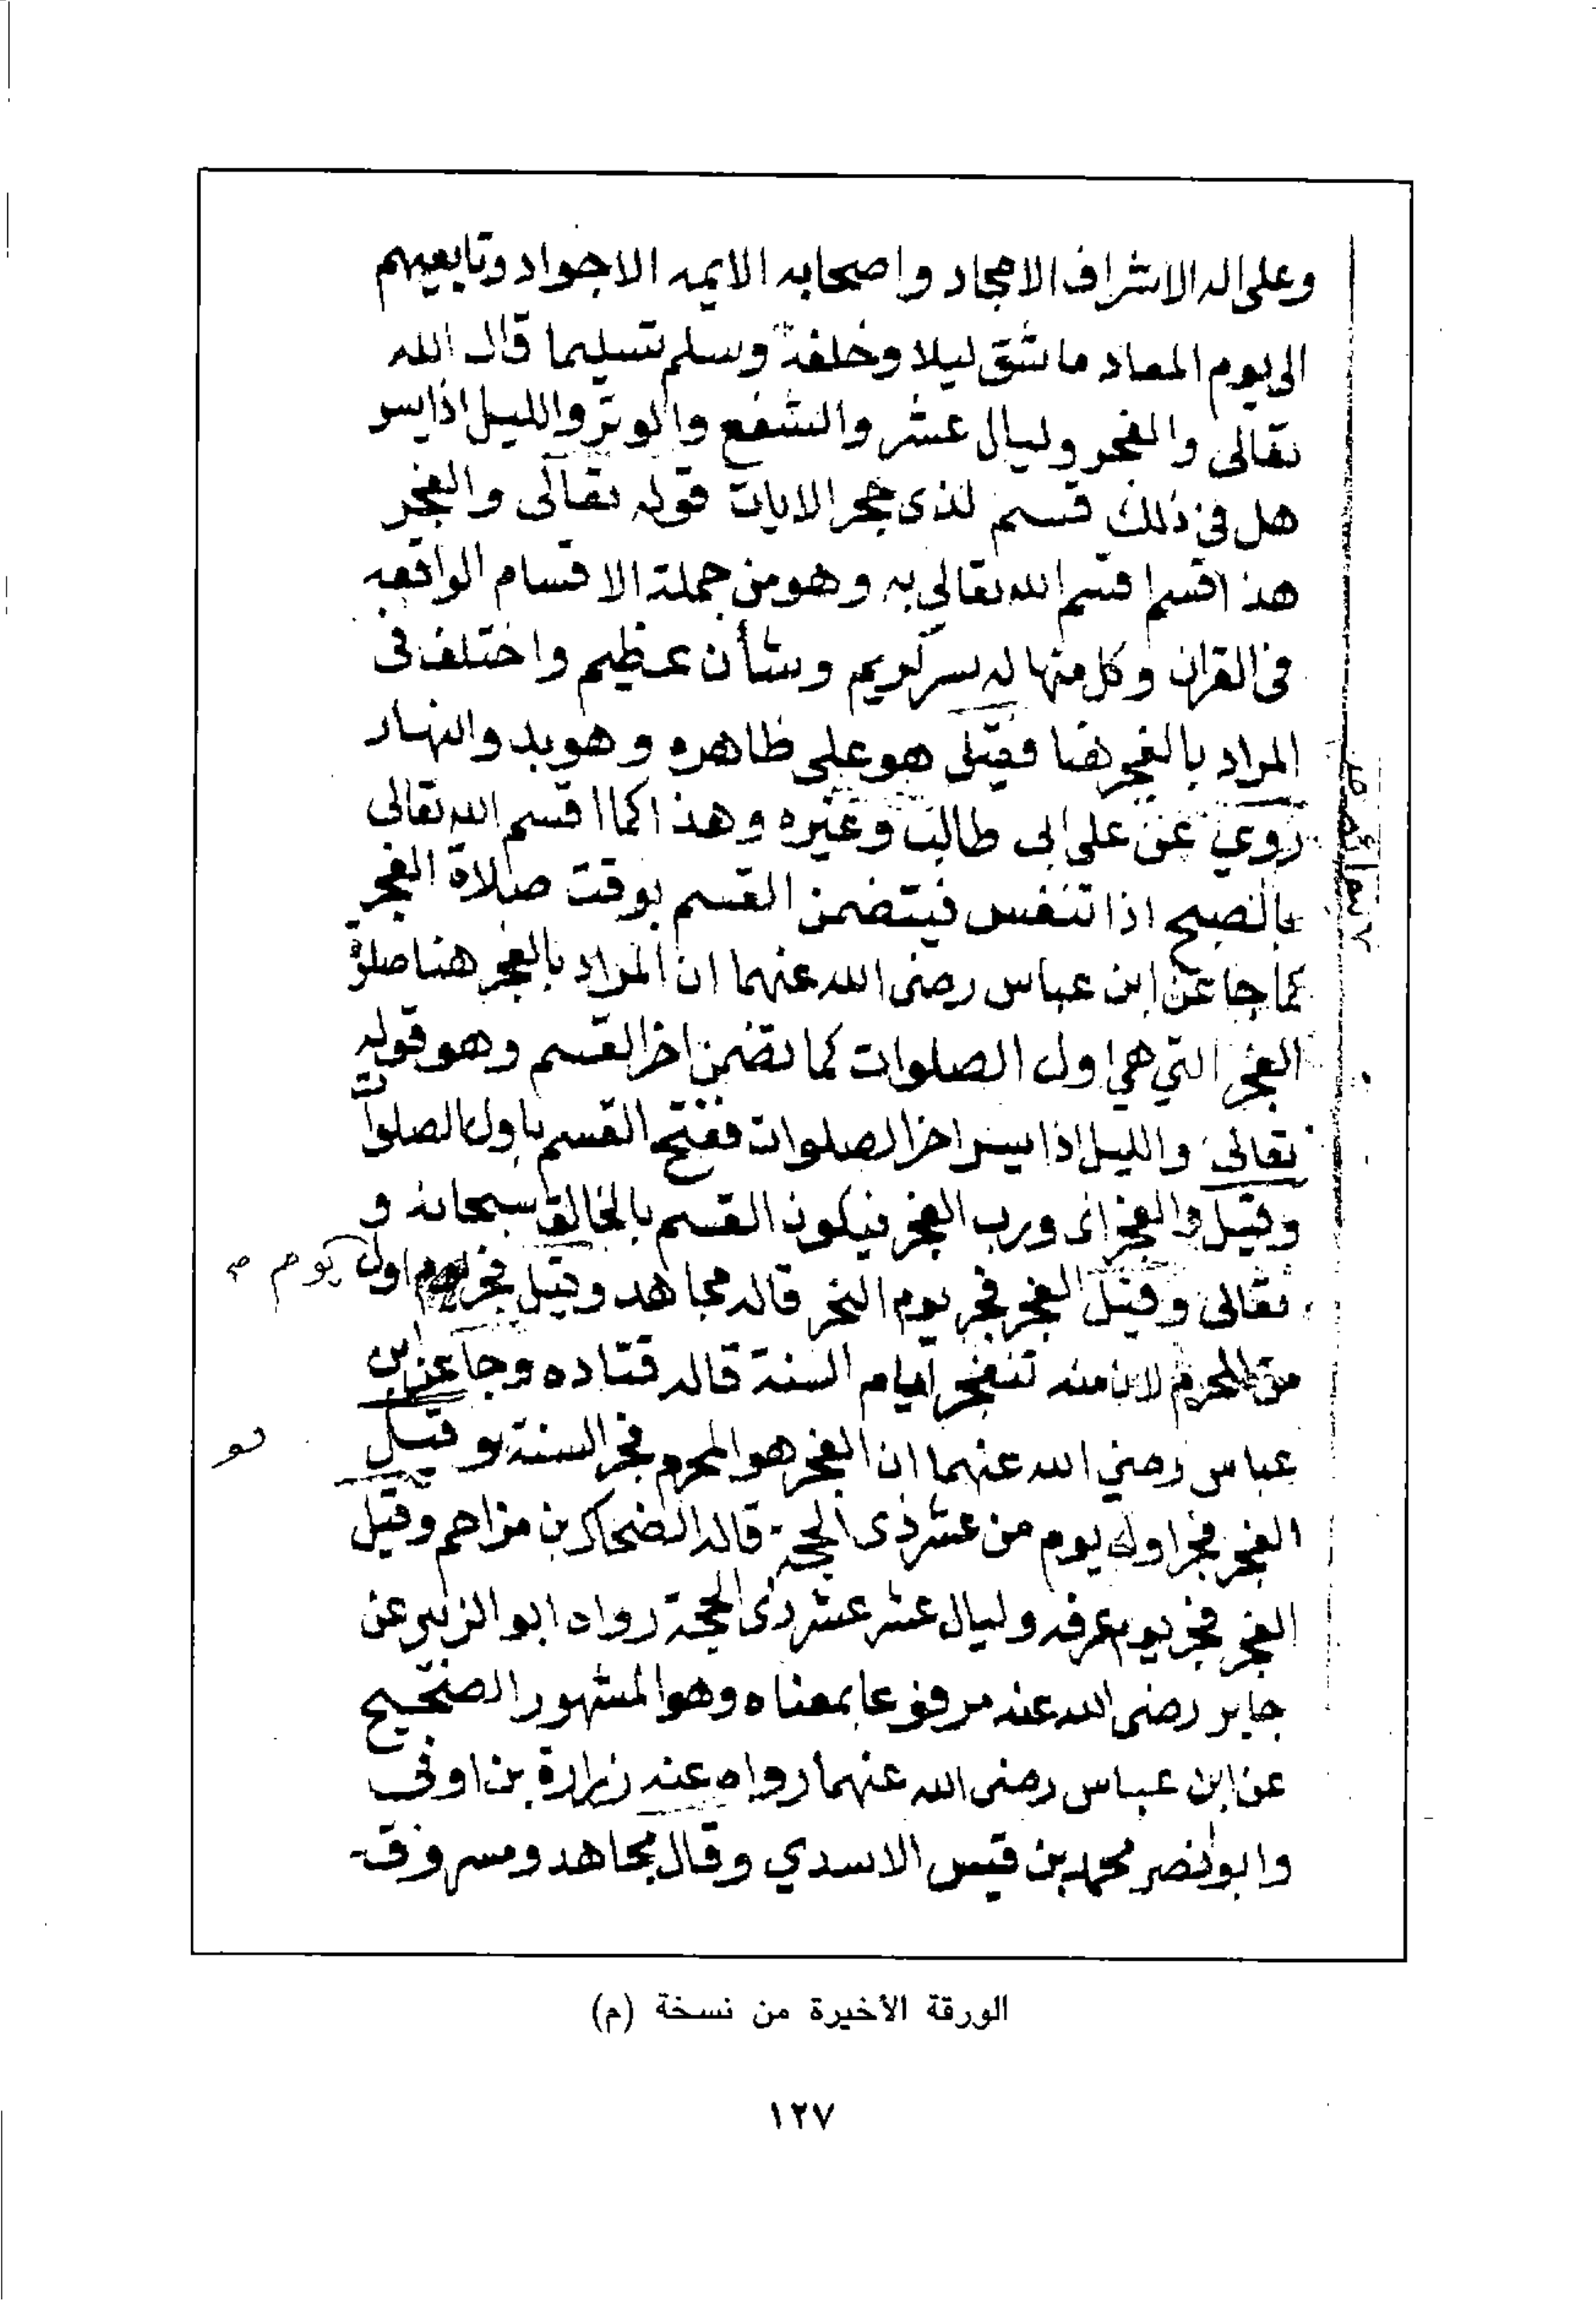 وعلى اله الاشراف الامجاد واصحابه الايمه الاجواد وتابعيهم
الى يوم المعاد ما شق ليلا وخلفه وسلم تسليما قال الله
تعالى والفجر وليال عشر والشفع والوتر والليل اذا يسر
هل في ذلك قسم لذى حجر الايات قوله تعالى والفجر
هذا قسم اقسم الله تعالى به وهو من جملة الاقسام الواقعه
فى القران وكل منها له سر كريم وشأن عظيم واختلف فى
المراد بالفجر هنا فقيل هو على ظاهره وهو بدو النهار
روي عن على ابى طالب وغيره وهذا كما اقسم الله تعالى
بالصبح اذا تنفس فيتضمن القسم بوقت صلاة الفجر
كما جا عن ابن عباس رضى الله عنهما ان المراد بالفجر هنا صلوة
الفجر التي هي اول الصلوات كما تضمن اخر القسم وهو قوله
تعالى والليل اذا يسر اخر الصلوات ففتح القسم باول الصلوات
وقيل والفجر اى ورب الفجر فيكون القسم بالخالق سبحانه و
تعالى وقيل الفجر فجر يوم النحر قاله مجاهد وقيل فجر اول يوم
من المحرم لان منه تنفجر ايام السنة قاله قتاده وجا عن ابن
عباس رضي الله عنهما ان الفجر هو المحرم فجر السنة وقيل
الفجر فجر اول يوم من عشر ذى الحجة قاله الضحاك بن مزاحم وقيل
الفجر فجر يوم عرفه وليال عشر عشر ذى الحجة رواه ابو الزبير عن
جابر رضى الله عنه مرفوعا بمعناه وهو المشهور الصحيح
عن ابن عباس رضى الله عنهما رواه عنه زرارة بن اوفي
وابو نصر محمد بن قيس الاسدي وقال مجاهد ومسروق
الورقة الأخيرة من نسخة (م)
١٢٧